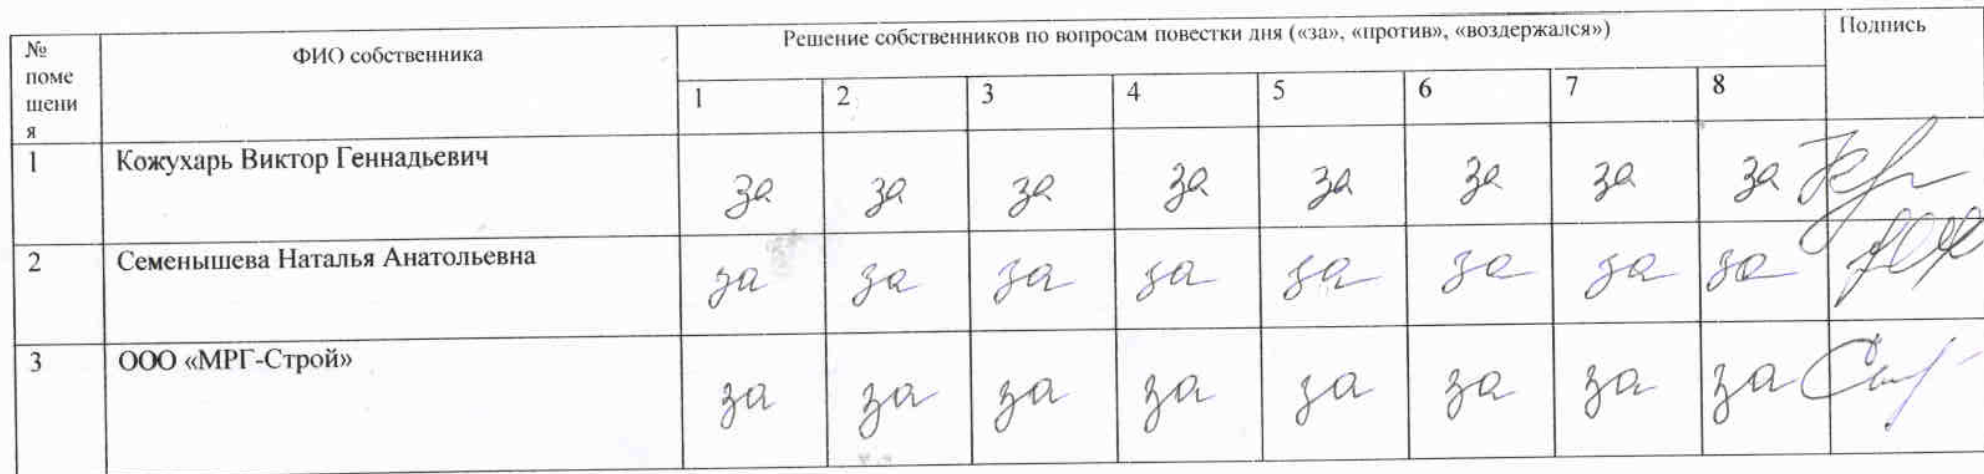 №
поме
щени
я
ФИО собственника
Решение собственников по вопросам повестки дня («за», «против», «воздержался»)
Подпись
1 2 3 4 5 6 7 8
1 Кожухарь Виктор Геннадьевич за за за за за за за за
2 Семенышева Наталья Анатольевна за за за за за за за за
3 ООО «МРГ-Строй» за за за за за за за за